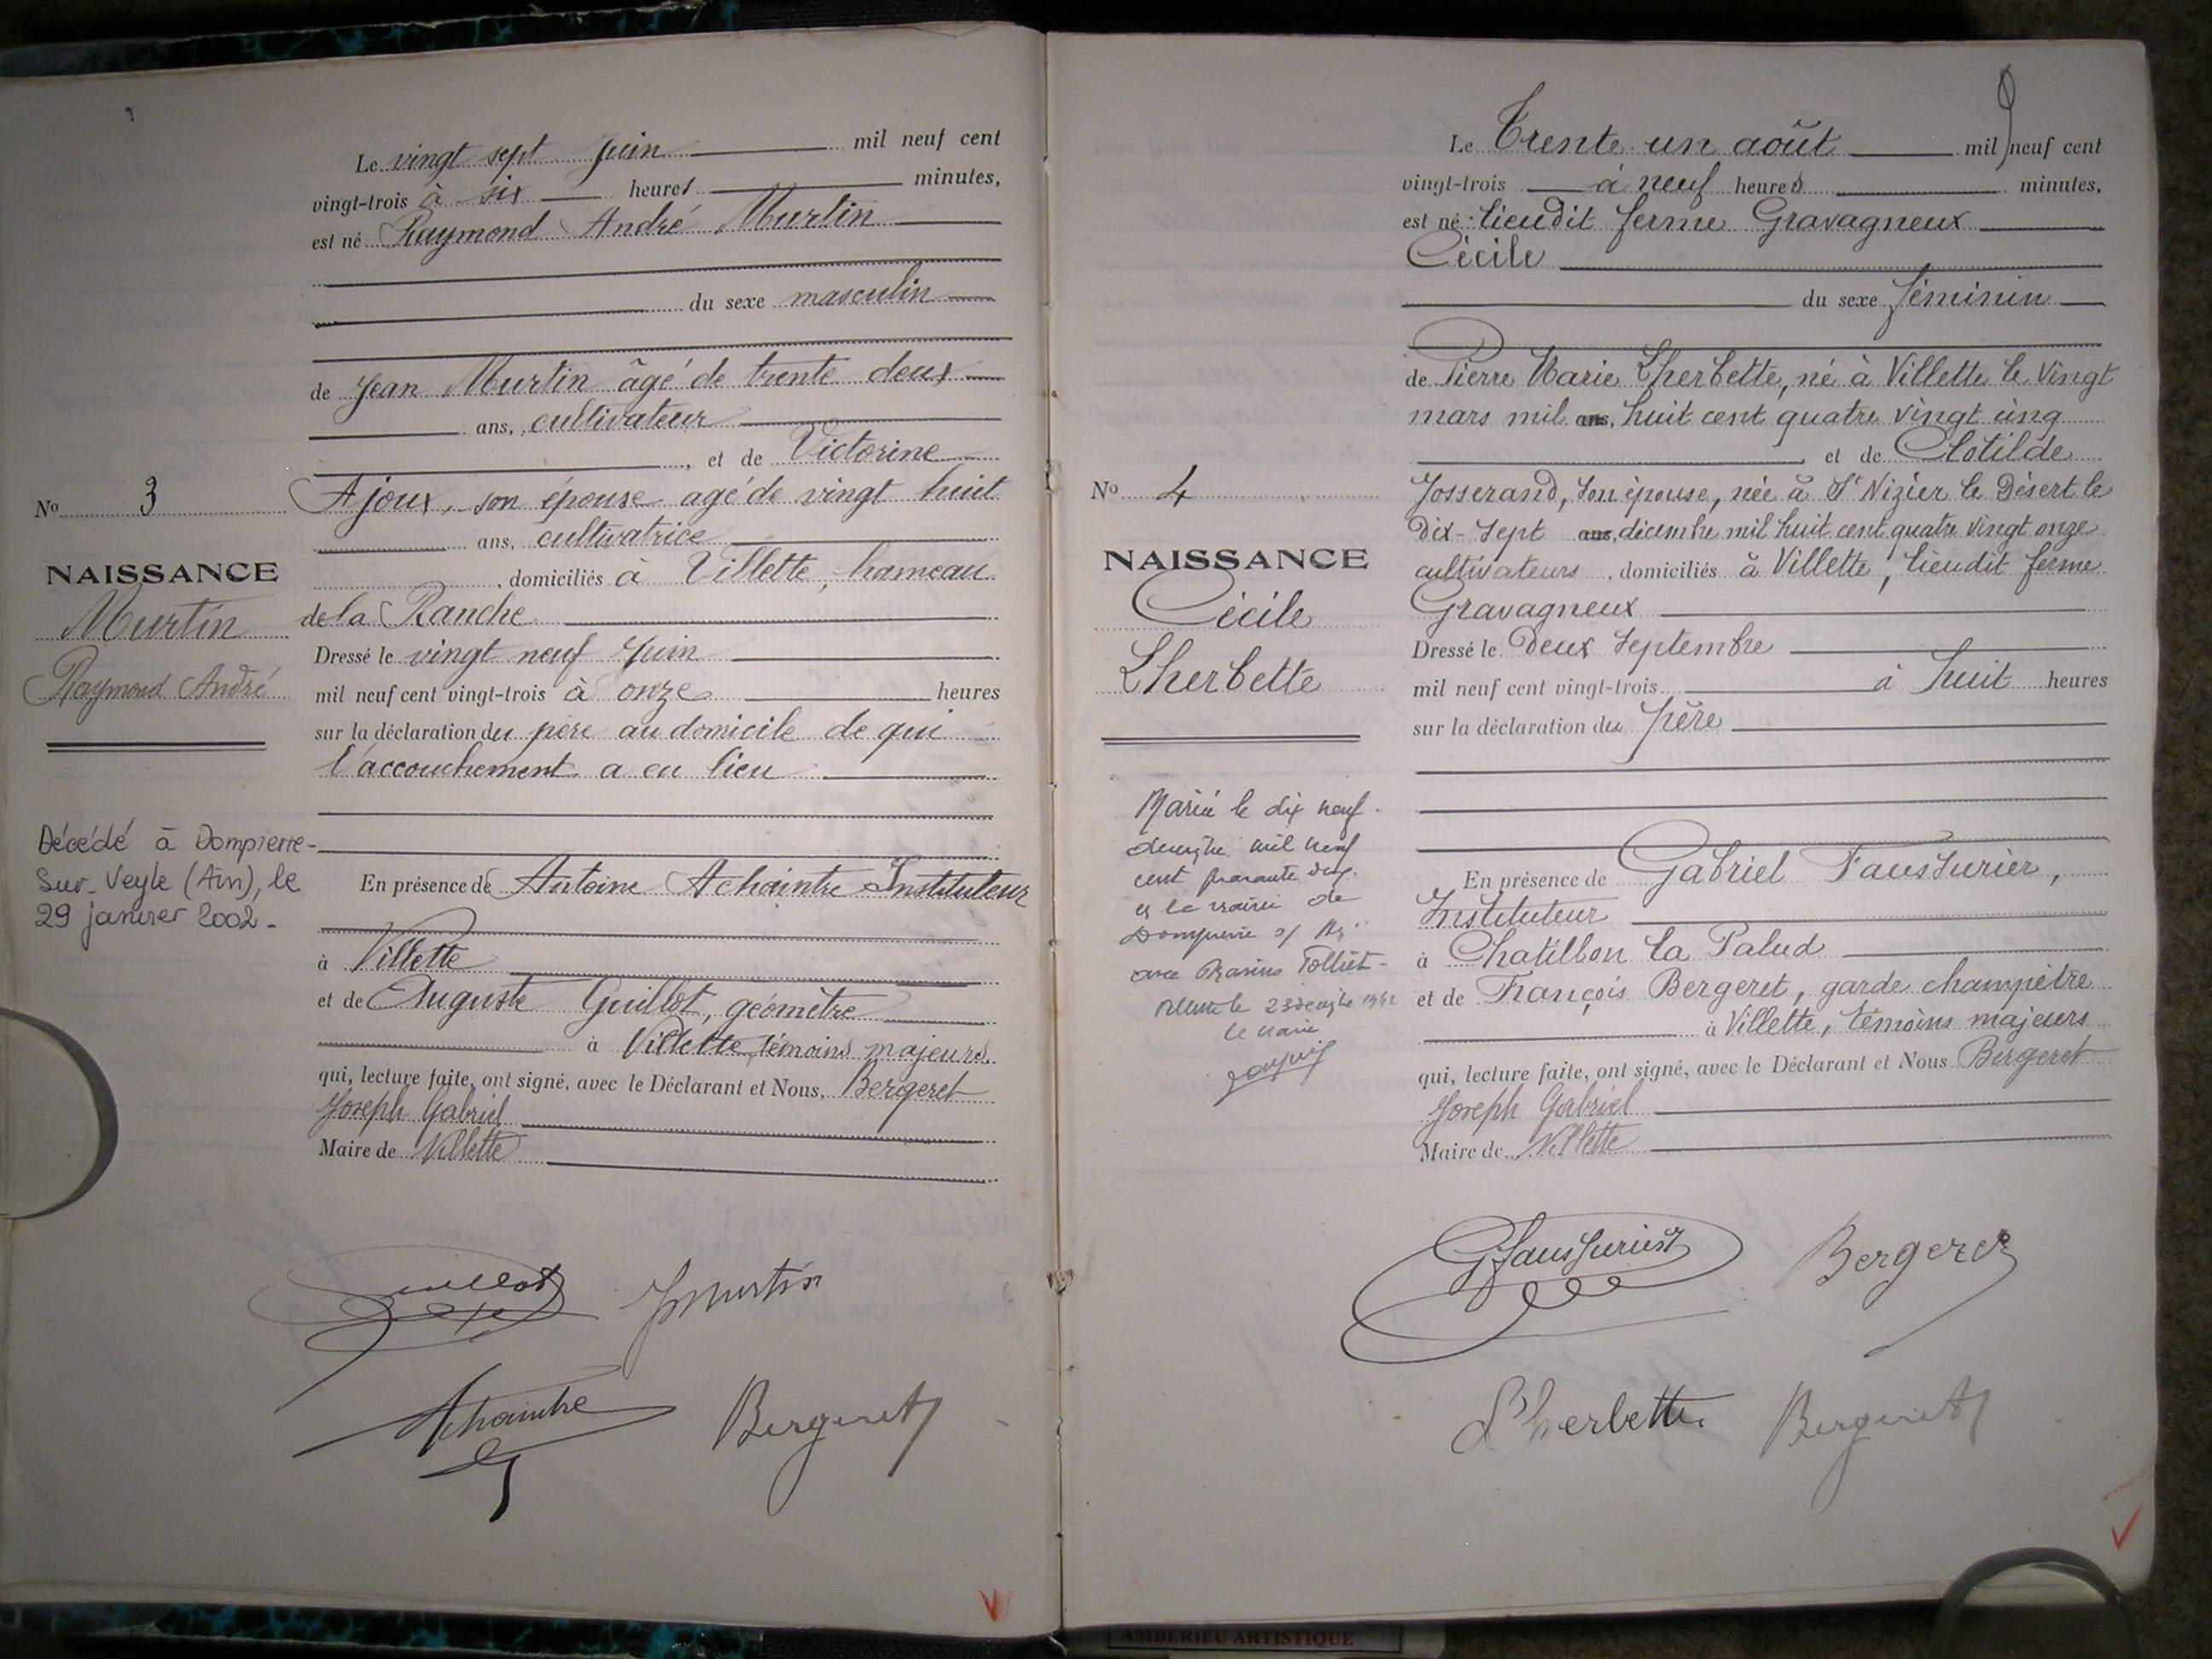 Le vingt sept Juin mil neuf cent
vingt-trois à six heures minutes,
est né Raymond André Murtin
du sexe masculin
de Jean Murtin âgé de trente deux
ans, cultivateur
, et de Victorine
Ajoux, son épouse agé de vingt huit
ans, cultivatrice
, domiciliés à Villette, hameau
de la Ranche
Dressé le vingt neuf Juin
mil neuf cent vingt-trois à onze heures
sur la déclaration du père au domicile de qui
l'accouchement a eu lieu
En présence de Antoine Achaintre Instituteur
à Villette
et de Auguste Guillot, géomètre
à Villette, témoins majeurs.
qui, lecture faite, ont signé, avec le Déclarant et Nous, Bergeret
Joseph Gabriel
Maire de Villette
No 3
NAISSANCE
Murtin
Raymond André
Décédé à Dompierre-
Sur-Veyle (Ain), le
29 janvier 2002-
Guillot
J Murtin
Achaintre
Bergeret
Le Trente-un août mil neuf cent
vingt-trois à neuf heures minutes,
est né : lieudit ferme Gravagneux
Cécile
du sexe féminin
de Pierre Marie Lherbette, né à Villette le vingt
mars mil ans, huit cent quatre vingt cinq
et de Clotilde
Josserand, son épouse, née à St Nizier le Désert le
dix-sept ans, décembre mil huit cent quatre vingt onze
cultivateurs , domiciliés à Villette, lieudit ferme
Gravagneux
Dressé le Deux Septembre
mil neuf cent vingt-trois à huit heures
sur la déclaration du père
En présence de Gabriel Faussurier,
Instituteur
à Chatillon la Palud
et de François Bergeret, garde champêtre
à Villette, témoins majeurs
qui, lecture faite, ont signé, avec le Déclarant et Nous Bergeret
Joseph Gabriel
Maire de Villette
No 4
NAISSANCE
Cécile
Lherbette
Mariée le dix neuf
décembre mil neuf
cent quarante deux
à la mairie de
Dompierre s/
avec Marius Tolliet-
le 23 décembre 1942
le maire
G Faussurier
Bergeret
Lherbette
Bergeret
AMBERIEU ARTISTIQUE